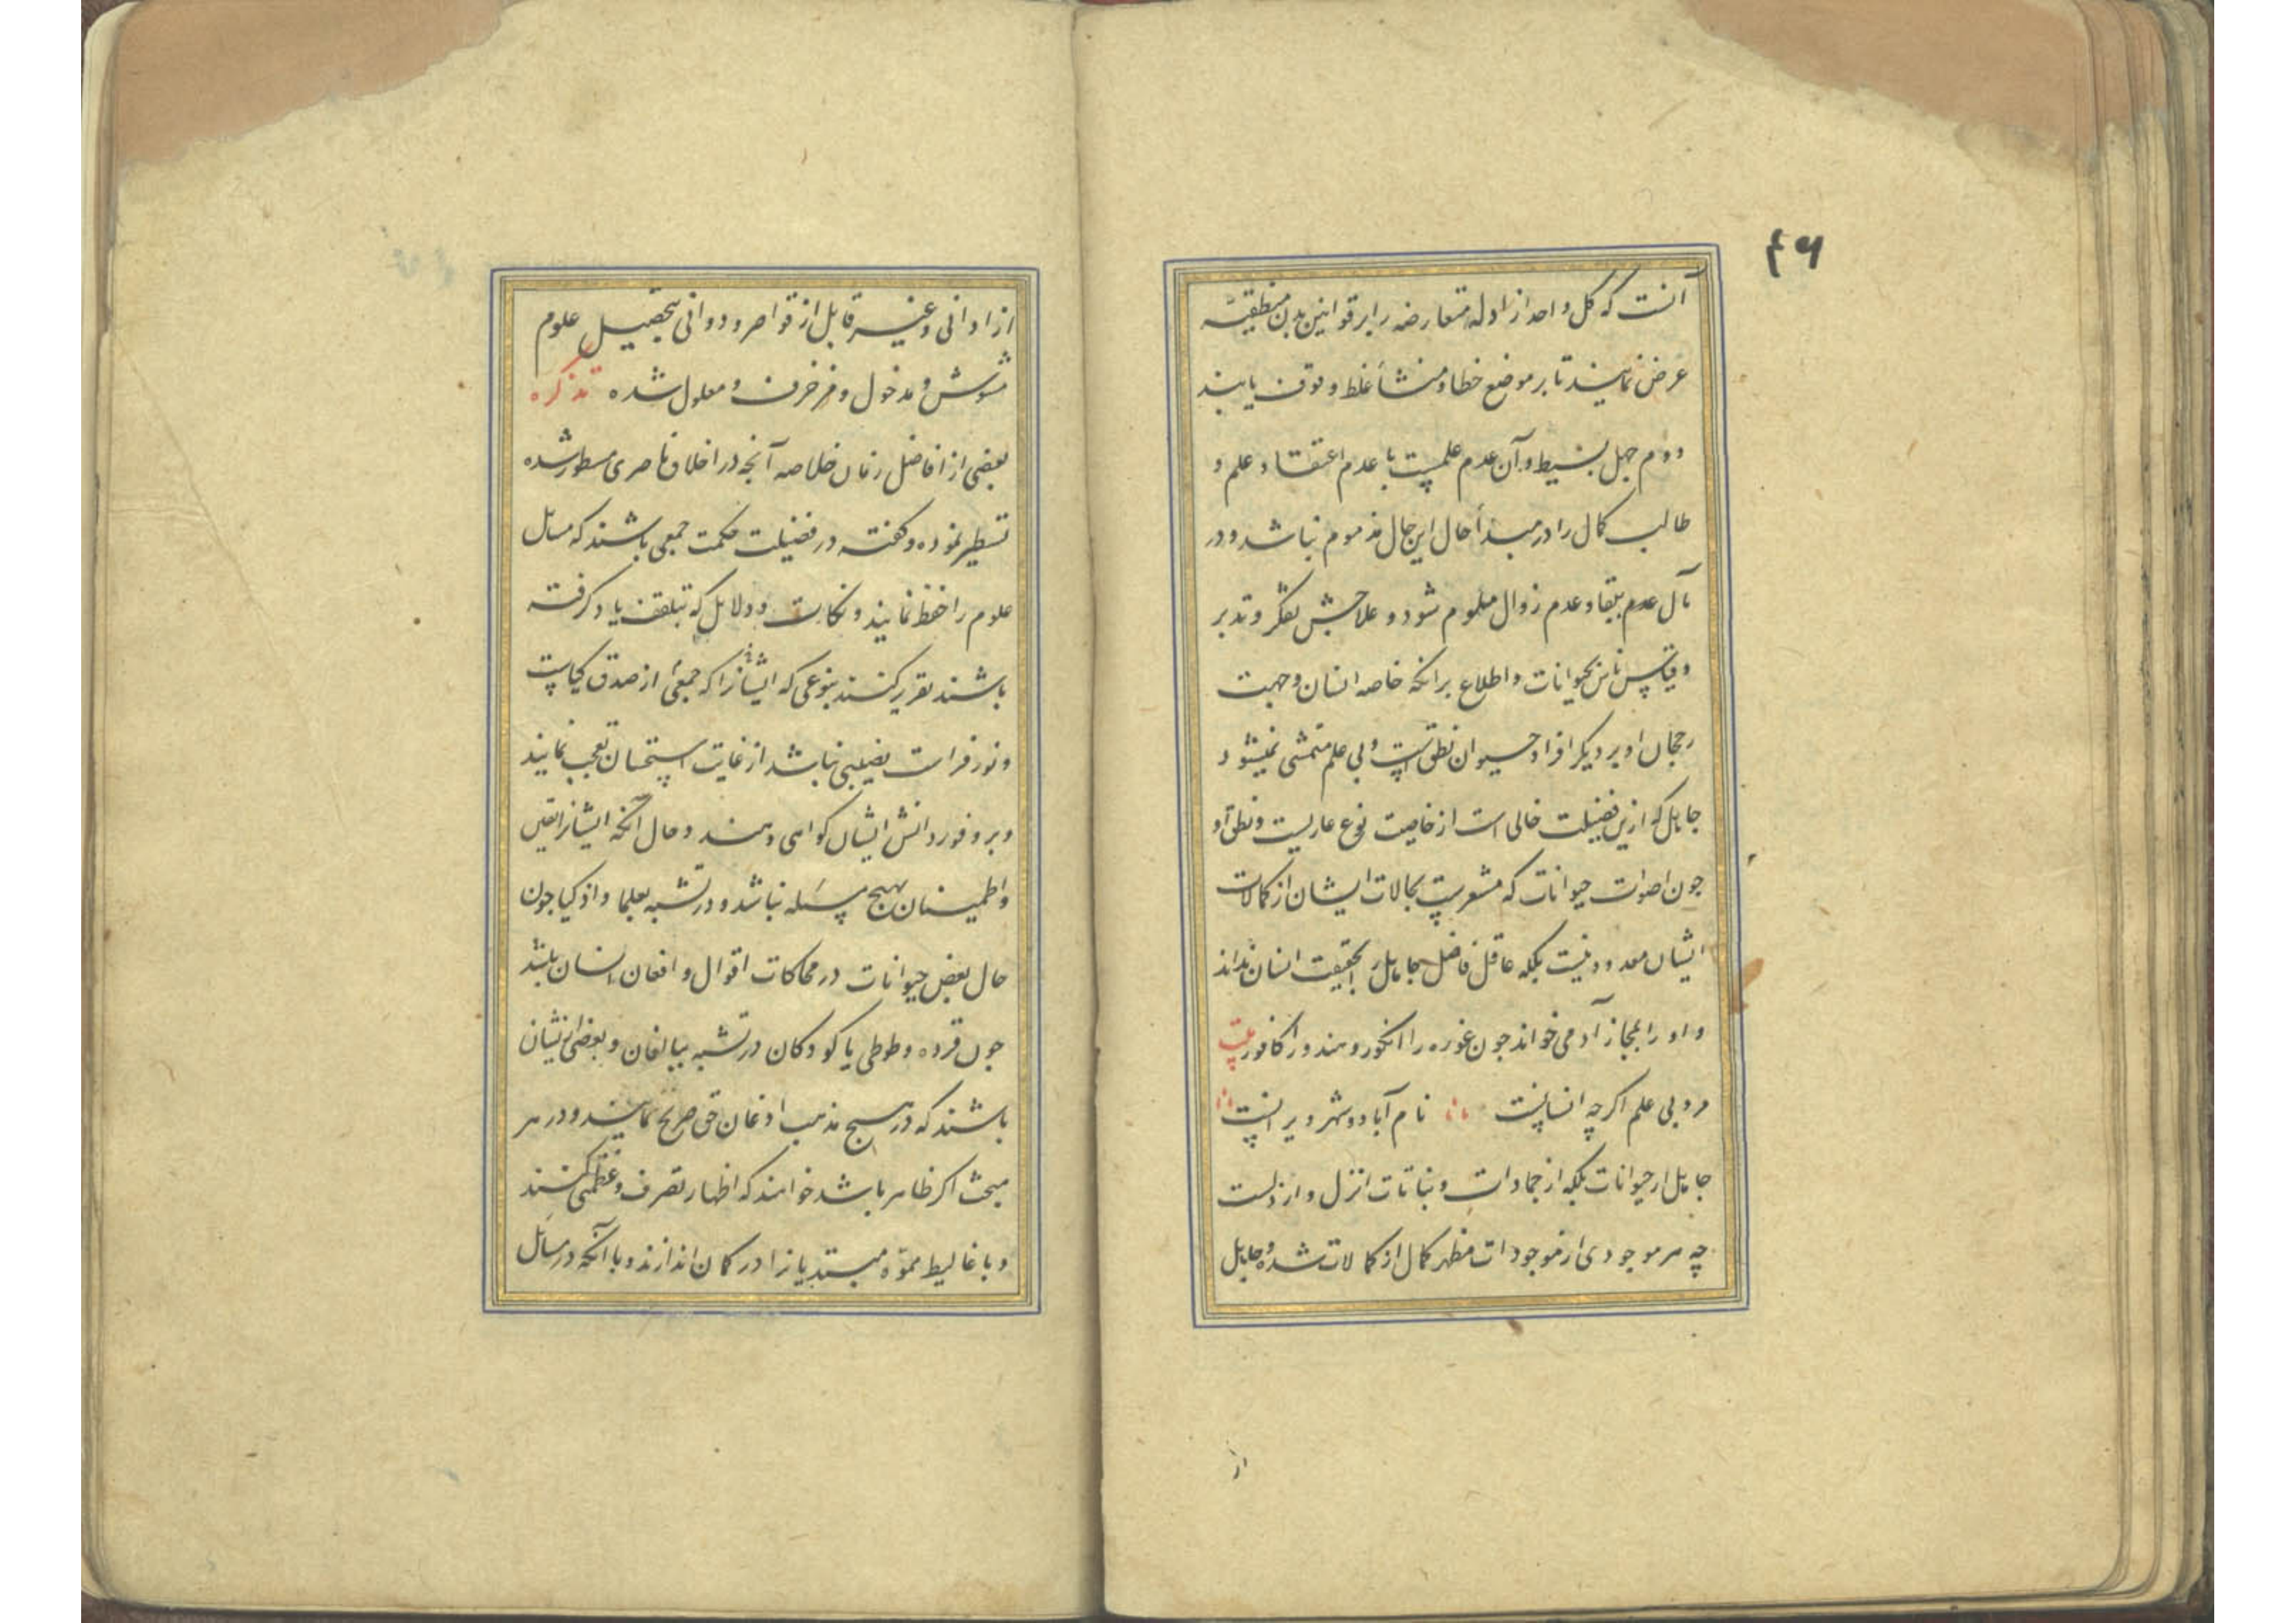 ۴۶
آنست که کل واحد از ادله متعارضه را بر قوانین منطقیه
عرض نمایند تا بر موضع خطا و منشأ غلط وقوف یابند
دوم جهل بسیط و آن عدم علمست با عدم اعتقاد علم و
طالب کمال را در مبدأ حال این حال مذموم نباشد و در
مآل عدم بقا و عدم زوال ملوم شود و علاجش تفکر و تدبر
و قیاس ناس بحیوانات و اطلاع برانکه خاصه انسان و جهت
رجحان او بر دیکر افراد حیوان نطق است و بی علم متمشی نمیشود
جاهل که ازین فضیلت خالی است از خاصیت نوع عاریست و نطق او
چون اصوات حیوانات که مشعرست بحالات ایشان از کمالات
ایشان معدود نیست بلکه عاقل فاضل جاهل را بحقیقت انسان نداند
و او را بمجاز آدمی خواند چون غوره را انکور و هندو را کافور بیت
مرد بی علم اکرچه انسانیست نام آباد و شهر ویرانیست
جاهل از حیوانات بلکه از جمادات و نباتات انزل و ارذلست
چه هر موجودی از موجودات مظهر کمال از کمالات شده و جاهل
از
از ادانی و غیر قابل از قواصر و دوانی بتحصیل علوم
مشوش و مدخول و مزخرف و معلول شده تذکره
بعضی از افاضل زمان خلاصه آنچه در اخلاق ناصری مسطور شده
تسطیر نموده و کفته در فضیلت حکمت جمعی باشند که مسائل
علوم را حفظ نمایند و نکات و دلایل که بتلقف یاد کرفته
باشند تقریر کنند بنوعی که ایشانرا که جمعی از صدق کیاست
و نور فراست نصیبی نباشد از غایت استحسان تعجب نمایند
و بر وفور دانش ایشان کواهی دهند و حال آنکه ایشانرا یقین
و اطمینان بهیچ مسئله نباشد و در تشبه بعلما و اذکیا چون
حال بعض حیوانات در محاکات اقوال و افعان انسان باشند
چون قرده و طوطی یا کودکان در تشبه ببالغان و بعضی ازیشان
باشند که در هیچ مذهب اذعان حق صریح نمایند و در هر
مبحث اکر ظاهر باشد خواهند که اظهار تصرف و عظمتی کنند
و باغالیط مموه مبتدیانرا در کمان اندازند و با آنکه در مسائل